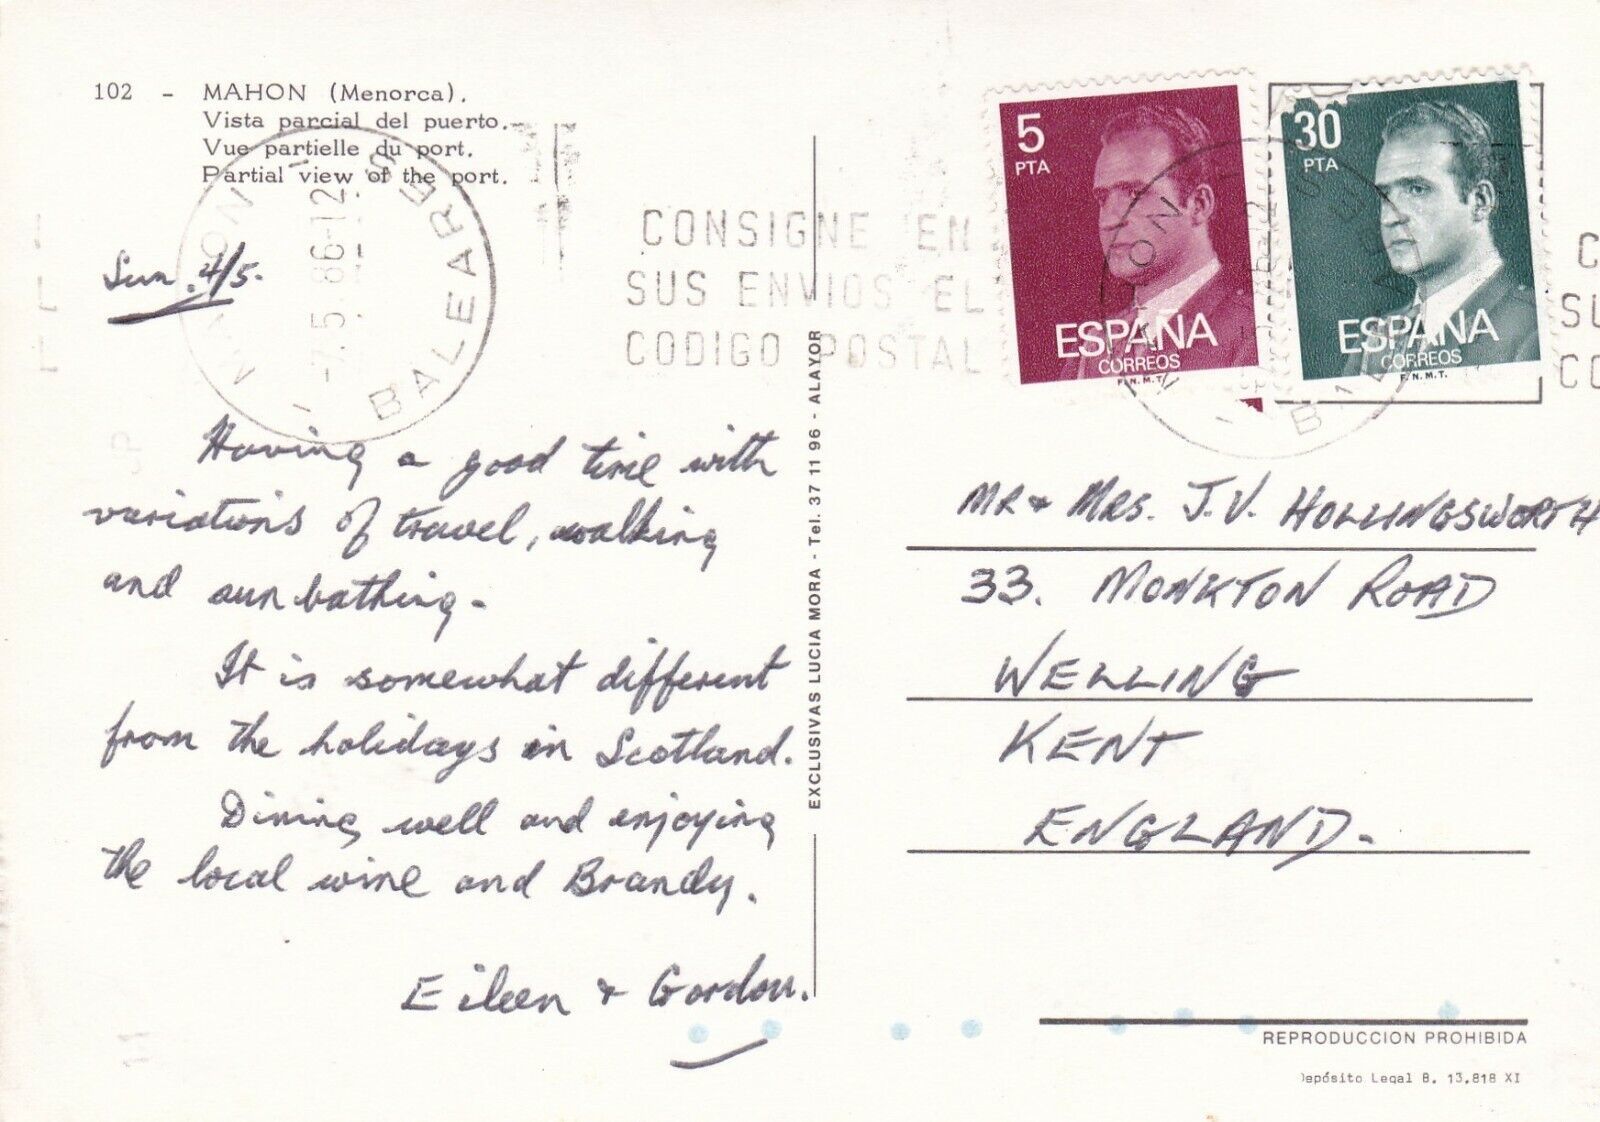 102 - MAHON (Menorca).
Vista parcial del puerto.
Vue partielle du port.
Partial view of the port.
MAHON
-7.5.86-12
BALEARES
CONSIGNE EN
SUS ENVIOS EL
CODIGO POSTAL
5
PTA
ESPAÑA
CORREOS
F.N.M.T.
30
PTA
ESPAÑA
CORREOS
F.N.M.T.
Sun. 4/5.
Having a good time with
variations of travel, walking
and sun bathing.
It is somewhat different
from the holidays in Scotland.
Dining well and enjoying
the local wine and Brandy.
Eileen & Gordon.
EXCLUSIVAS LUCIA MORA - Tel. 37 11 96 - ALAYOR
MR & MRS. J.V. HOLLINGSWORTH
33. MONKTON ROAD
WELLING
KENT
ENGLAND.
REPRODUCCION PROHIBIDA
Depósito Legal B. 13.818 XI